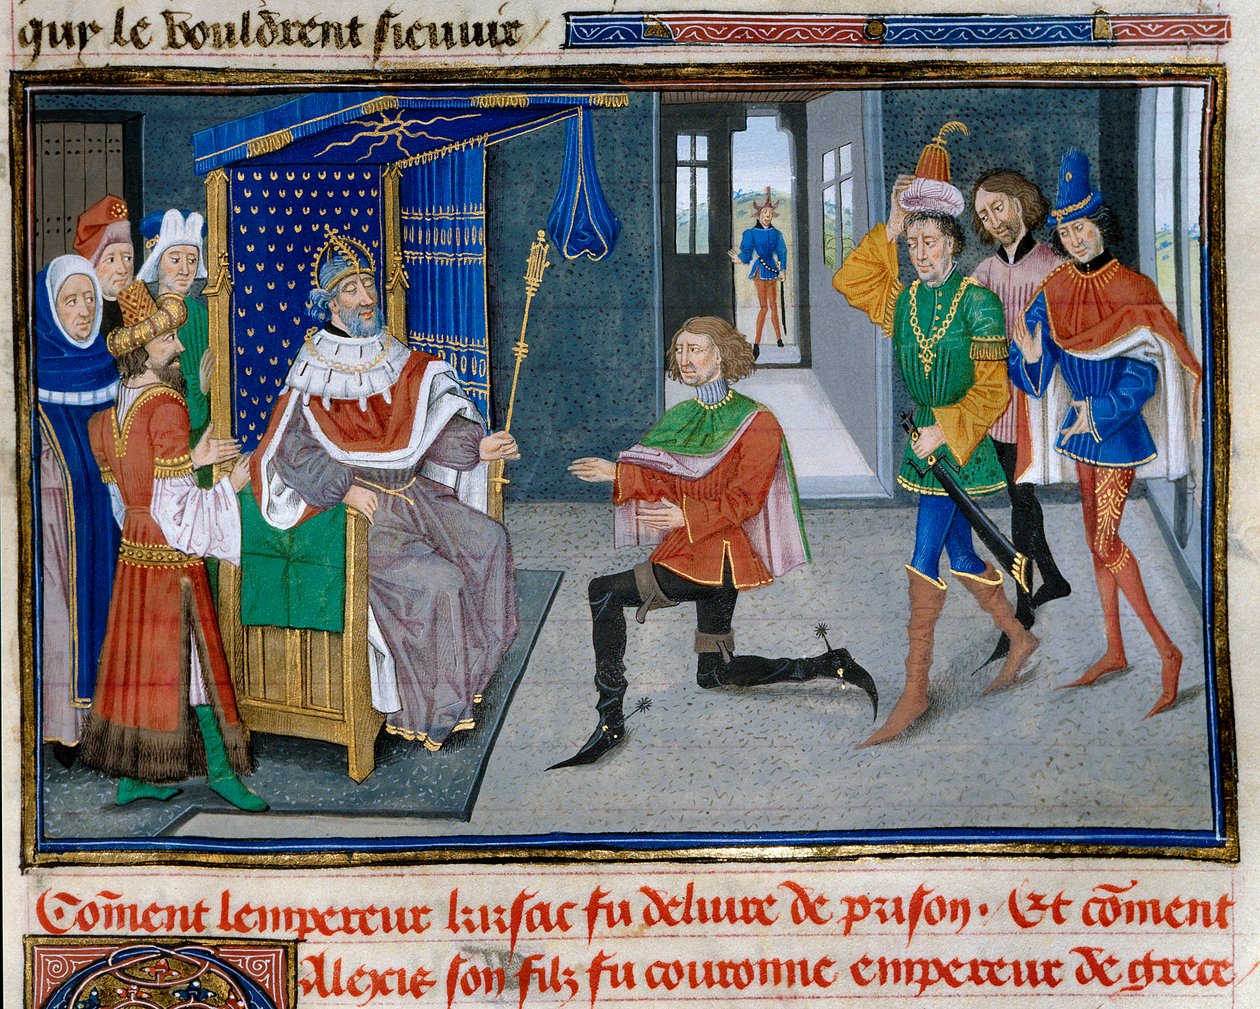 quy le vouldrent servir
Com̃ent lempereur kirsac fu deliure de prison. Et com̃ent
Alexis son filz fu couronne empereur de grece